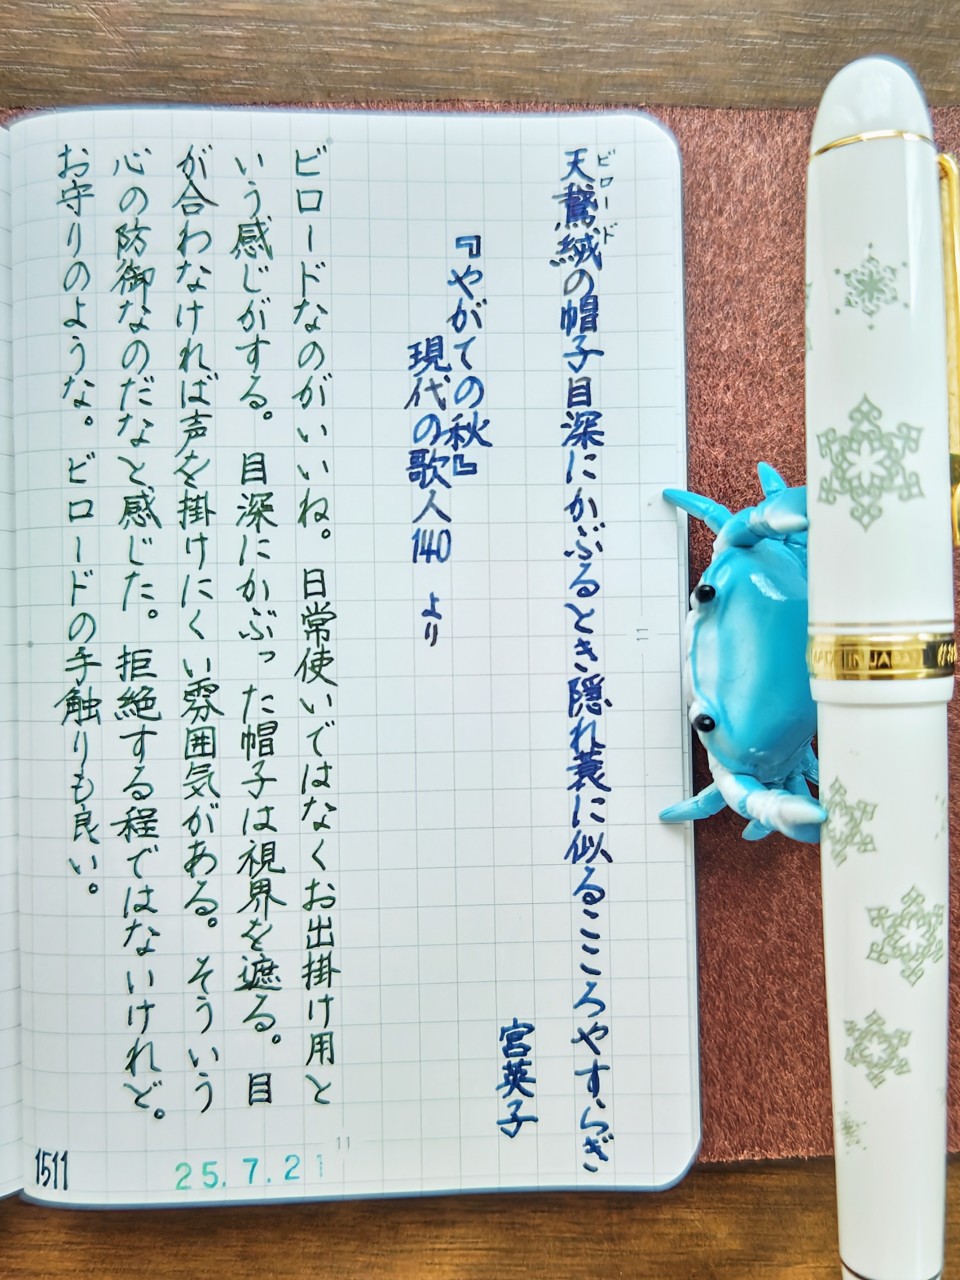 天鵞絨の帽子目深にかぶるとき隠れ蓑に似るこころやすらぎ
ビロード
宮英子
『やがての秋』
現代の歌人140 より
ビロードなのがいいね。日常使いではなくお出掛け用と
いう感じがする。目深にかぶった帽子は視界を遮る。目
が合わなければ声を掛けにくい雰囲気がある。そういう
心の防御なのだなと感じた。拒絶する程ではないけれど。
お守りのような。ビロードの手触りも良い。
1511
25.7.21
11
11
MADE IN JAPAN